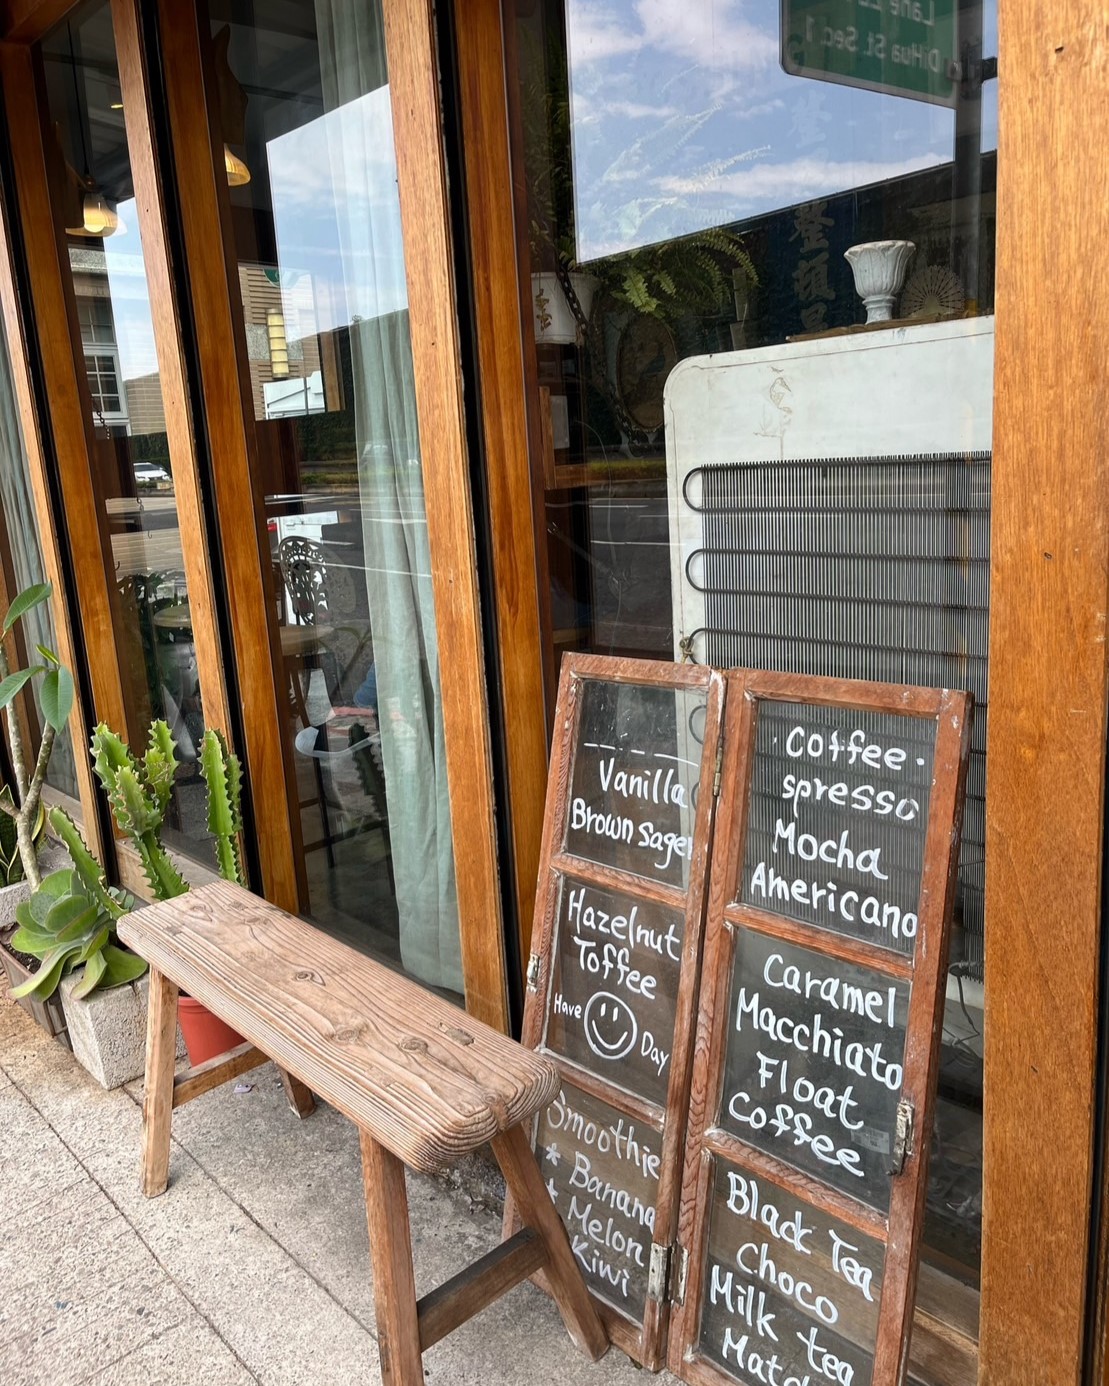 Lane
DiHua St. Sec 1
整頓
Vanilla
Brown sager
Hazelnut
Toffee
Have
Day
Smoothie
* Banana
* Melon
Kiwi
Coffee
spresso
Mocha
Americano
Caramel
Macchiato
Float
Coffee
Black Tea
Choco
Milk tea